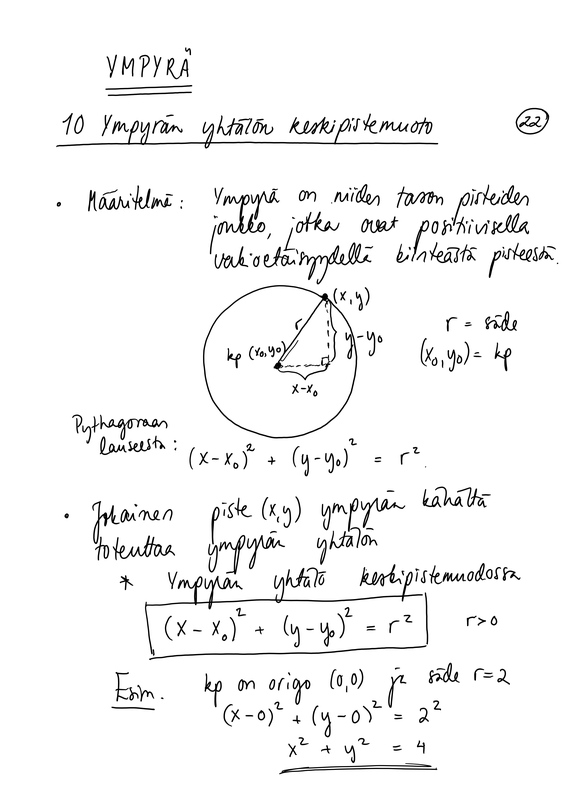 YMPYRÄ
10 Ympyrän yhtälön keskipistemuoto
22
• Määritelmä: Ympyrä on niiden tason pisteiden
joukko, jotka ovat positiivisella
vakioetäisyydellä kiinteästä pisteestä.
(x,y)
r
y-y₀
kp (x₀,y₀)
x-x₀
r = säde
(x₀,y₀) = kp
Pythagoraan
lauseesta: (x-x₀)² + (y-y₀)² = r².
• Jokainen piste (x,y) ympyrän kehältä
toteuttaa ympyrän yhtälön
* Ympyrän yhtälö keskipistemuodossa
(x-x₀)² + (y-y₀)² = r² r>0
Esim. kp on origo (0,0) ja säde r=2
(x-0)² + (y-0)² = 2²
x² + y² = 4